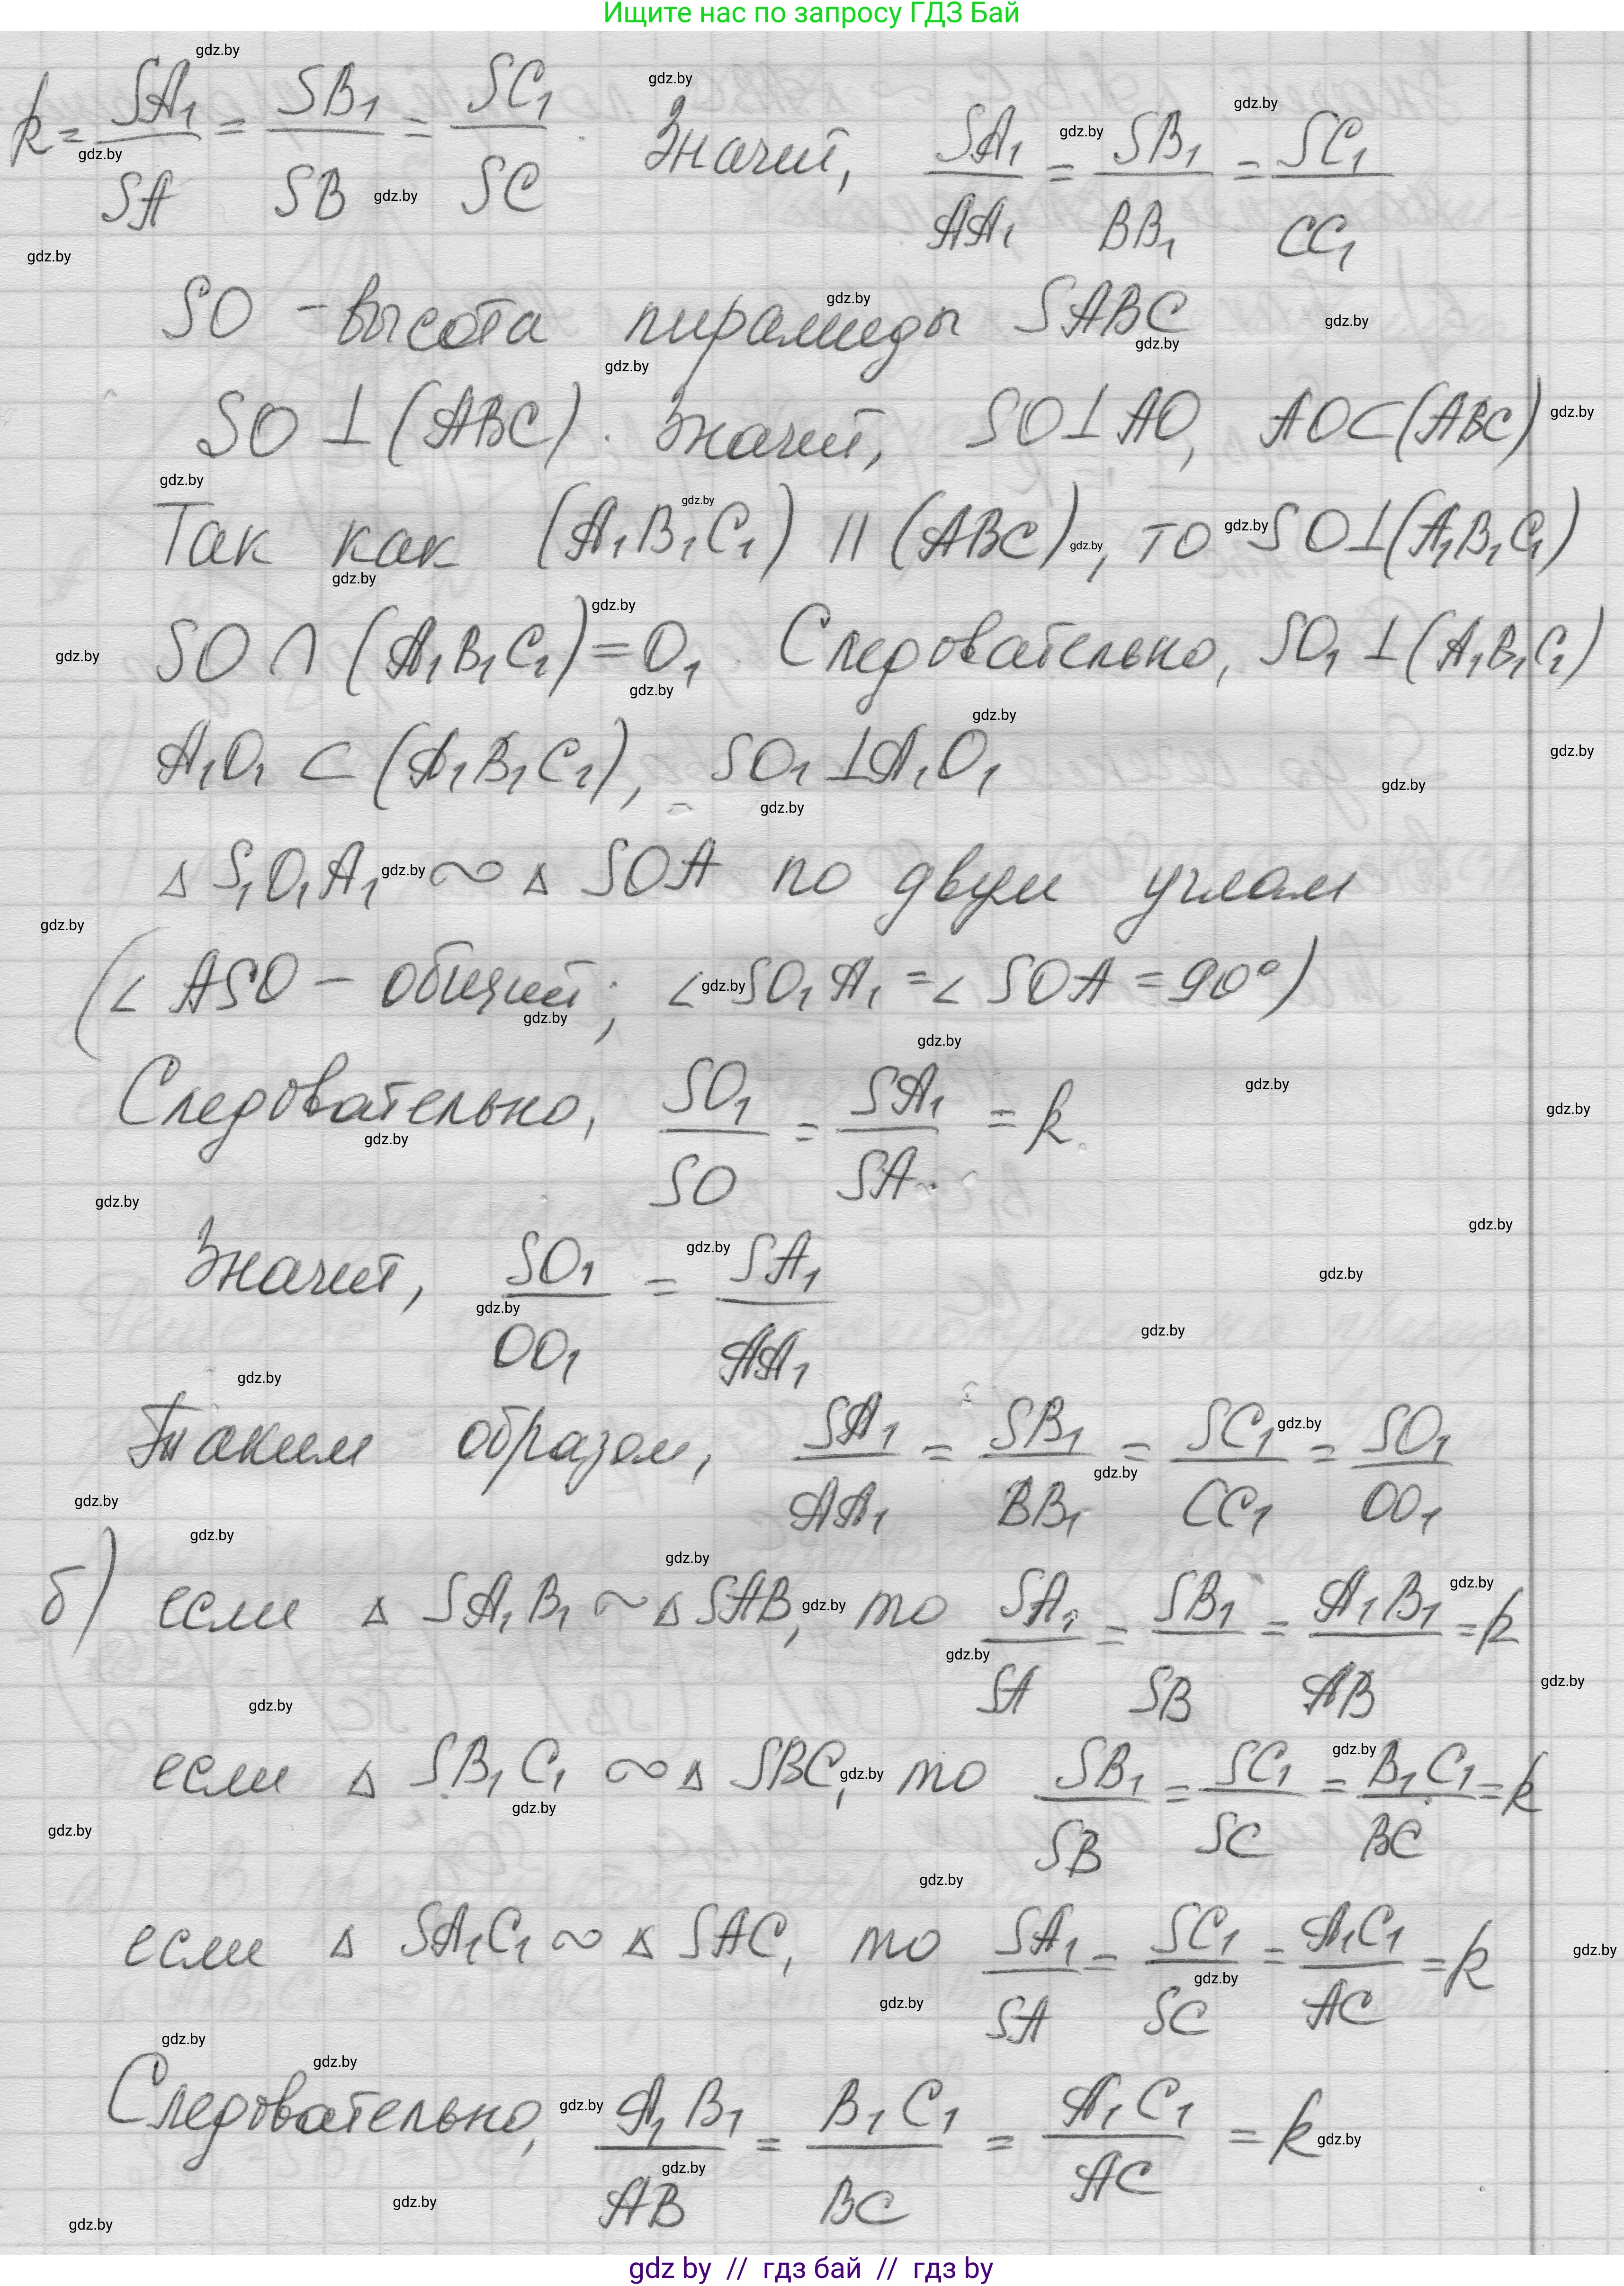 Ищите нас по запросу ГДЗ Бай
k = SA₁/SA = SB₁/SB = SC₁/SC. Значит, SA₁/AA₁ = SB₁/BB₁ = SC₁/CC₁
SO – высота пирамиды SABC
SO ⊥ (ABC). Значит, SO ⊥ AO, AO ⊂ (ABC)
Так как (A₁B₁C₁) || (ABC), то SO ⊥ (A₁B₁C₁)
SO ∩ (A₁B₁C₁) = O₁. Следовательно, SO₁ ⊥ (A₁B₁C₁)
A₁O₁ ⊂ (A₁B₁C₁), SO₁ ⊥ A₁O₁
△ S₁O₁A₁ ∾ △ SOA по двум углам
(∠ ASO – общий; ∠ SO₁A₁ = ∠ SOA = 90°)
Следовательно, SO₁/SO = SA₁/SA = k.
Значит, SO₁/OO₁ = SA₁/AA₁
Таким образом, SA₁/AA₁ = SB₁/BB₁ = SC₁/CC₁ = SO₁/OO₁
б) если △ SA₁B₁ ∾ △ SAB, то SA₁/SA = SB₁/SB = A₁B₁/AB = k
если △ SB₁C₁ ∾ △ SBC, то SB₁/SB = SC₁/SC = B₁C₁/BC = k
если △ SA₁C₁ ∾ △ SAC, то SA₁/SA = SC₁/SC = A₁C₁/AC = k
Следовательно, A₁B₁/AB = B₁C₁/BC = A₁C₁/AC = k
gdz by // гдз бай // гдз by